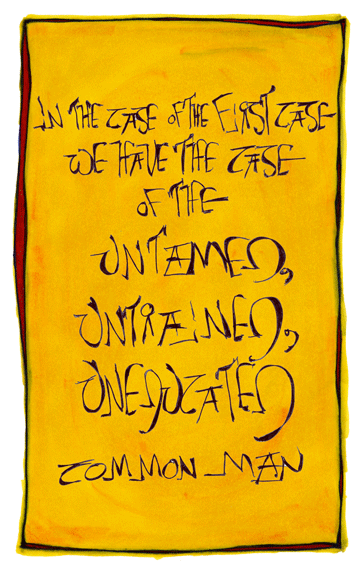 IN THE CASE OF THE FIRST CASE
WE HAVE THE CASE
OF THE
UNTAMED,
UNTRAINED,
UNEDUCATED
COMMON MAN